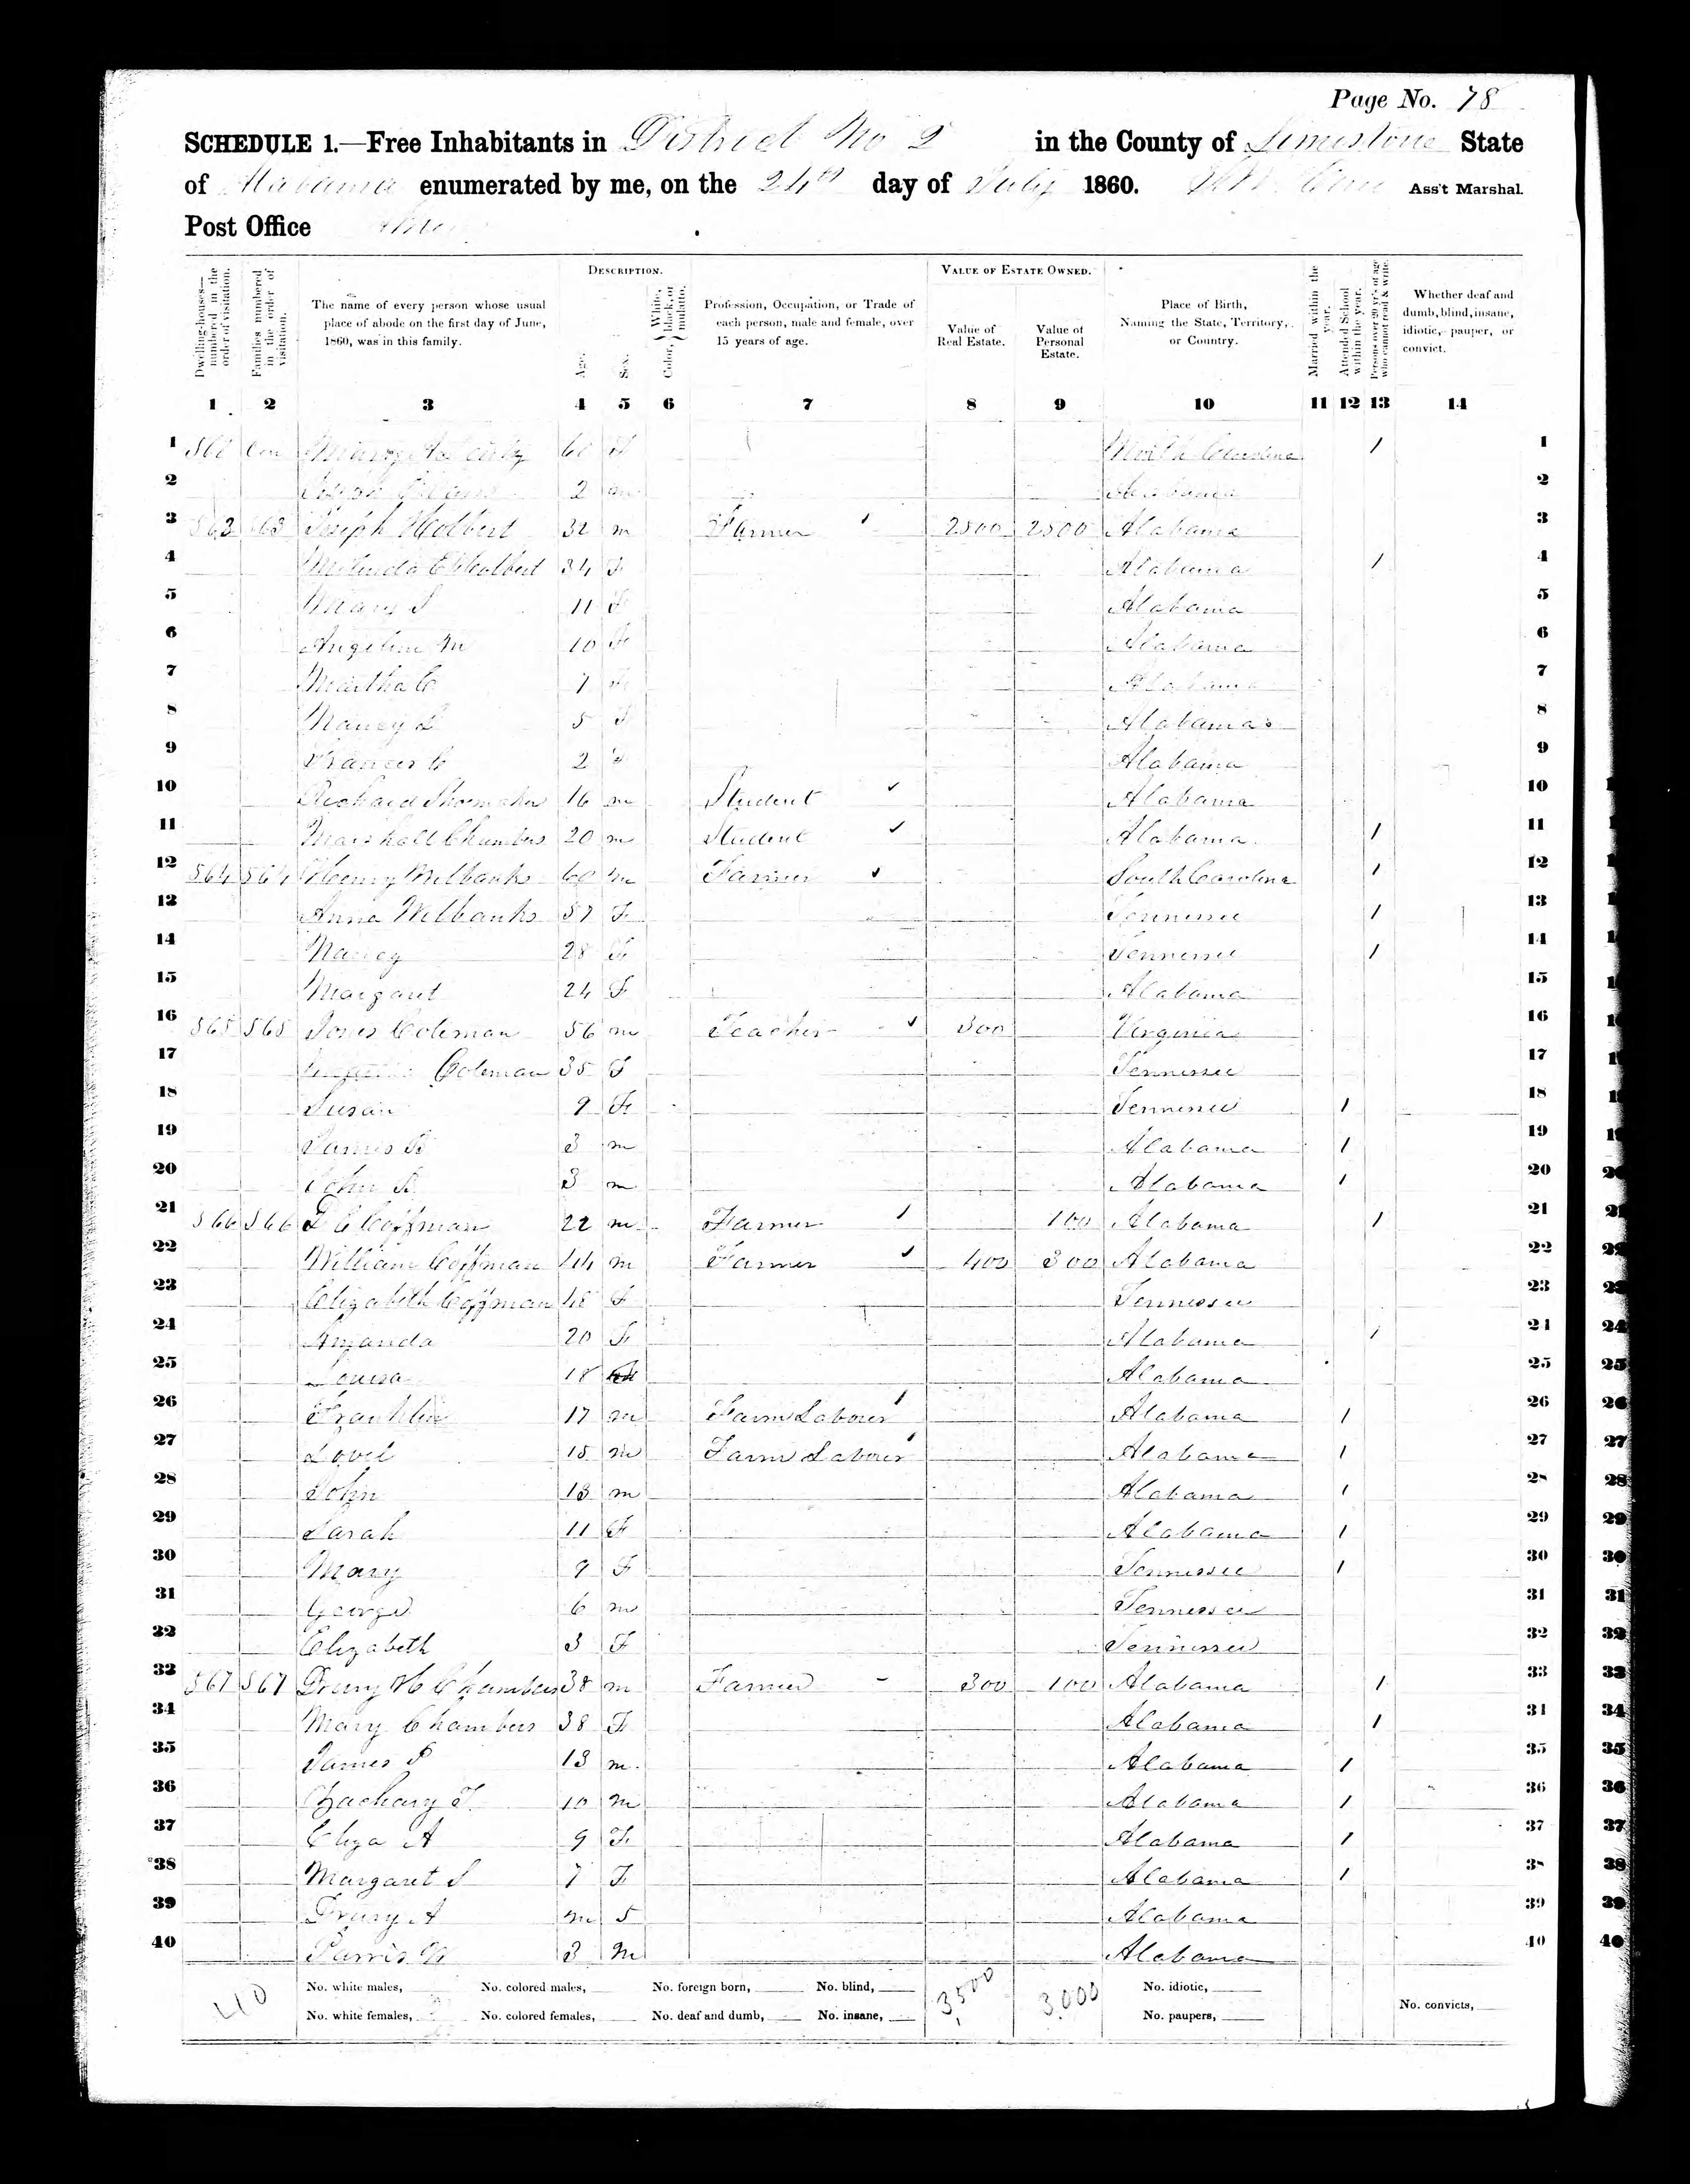 Page No. 78
SCHEDULE 1.—Free Inhabitants in District No 2 in the County of Limestone State
of Alabama enumerated by me, on the 24th day of July 1860. Ass't Marshal.
Post Office
Dwelling-houses—numbered in the order of visitation.
Families numbered in the order of visitation.
The name of every person whose usual place of abode on the first day of June, 1860, was in this family.
DESCRIPTION.
Age.
Sex.
Color, White, black, or mulatto.
Profession, Occupation, or Trade of each person, male and female, over 15 years of age.
VALUE OF ESTATE OWNED.
Value of Real Estate.
Value of Personal Estate.
Place of Birth, Naming the State, Territory, or Country.
Married within the year.
Attended School within the year.
Persons over 20 y'rs of age who cannot read & write.
Whether deaf and dumb, blind, insane, idiotic, pauper, or convict.
1 2 3 4 5 6 7 8 9 10 11 12 13 14
1 60 F North Carolina / 1
2 2 m Alabama 2
3 563 563 Joseph Holbert 32 m Farmer 2500 2500 Alabama 3
4 Holbert 34 F Alabama / 4
5 Mary S 11 F Alabama 5
6 Angeline M 10 F Alabama 6
7 Martha C 7 F Alabama 7
8 Nancy L 5 F Alabama 8
9 Frances 2 F Alabama 9
10 Richard Shoemaker 16 m Student ✓ Alabama 10
11 Marshall Chambers 20 m Student ✓ Alabama / 11
12 564 564 Henry Wilbanks 60 m Farmer ✓ South Carolina / 12
13 Anna Wilbanks 57 F Tennessee / 13
14 Nancy 28 F Tennessee / 14
15 Margaret 24 F Alabama 15
16 565 565 Coleman 56 m Teacher ✓ 300 Virginia 16
17 Coleman 35 F Tennessee 17
18 Susan 9 F Tennessee / 18
19 James 3 m Alabama / 19
20 John 3 m Alabama / 20
21 566 566 Coffman 22 m Farmer / 100 Alabama / 21
22 William Coffman 44 m Farmer ✓ 400 300 Alabama 22
23 Elizabeth Coffman 48 F Tennessee 23
24 Amanda 20 F Alabama / 24
25 Louisa 18 Alabama 25
26 Franklin 17 m Farm Labour / Alabama / 26
27 Lovel 15 m Farm Labour / Alabama / 27
28 John 13 m Alabama / 28
29 Sarah 11 F Alabama / 29
30 Mary 9 F Tennessee / 30
31 George 6 m Tennessee 31
32 Elizabeth 3 F Tennessee 32
33 567 567 Drury H Chambers 38 m Farmer - 300 100 Alabama / 33
34 Mary Chambers 38 F Alabama / 34
35 James P 13 m Alabama / 35
36 Zachary T. 10 m Alabama / 36
37 Eliza A 9 F Alabama / 37
38 Margaret S 7 F Alabama / 38
39 Drury A m 5 Alabama 39
40 3 m Alabama 40
40
No. white males, No. colored males, No. foreign born, No. blind, 3,500 3,000 No. idiotic,
No. white females, No. colored females, No. deaf and dumb, No. insane, No. paupers, No. convicts,